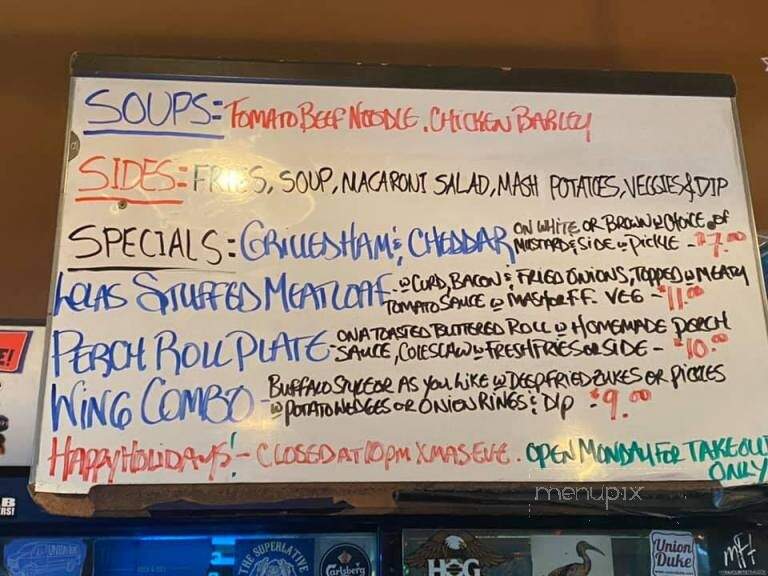 SOUPS = TOMATO BEEF NOODLE. CHICKEN BARLEY
SIDES = FRIES, SOUP, MACARONI SALAD, MASH POTATOES, VEGGIES & DIP
SPECIALS: GRILLED HAM & CHEDDAR ON WHITE OR BROWN W CHOICE OF
MUSTARD & SIDE W PICKLE - $7.00
LOLAS STUFFED MEATLOAF - W CURD, BACON & FRIED ONIONS, TOPPED W MEATY
TOMATO SAUCE W MASH OR FF. VEG - $11.00
PERCH ROLL PLATE - ON A TOASTED BUTTERED ROLL W HOMEMADE PERCH
SAUCE, COLESLAW W FRESH FRIES OR SIDE - $10.00
WING COMBO - BUFFALO STYLE OR AS YOU LIKE W DEEP FRIED ZUKES OR PICKLES
W POTATO WEDGES OR ONION RINGS & DIP $9.00
HAPPY HOLIDAYS! - CLOSED AT 10PM XMAS EVE. OPEN MONDAY FOR TAKEOUT
ONLY
menupix
THE SUPERLATIVE
Carlsberg
HOG
Union
Duke
MH